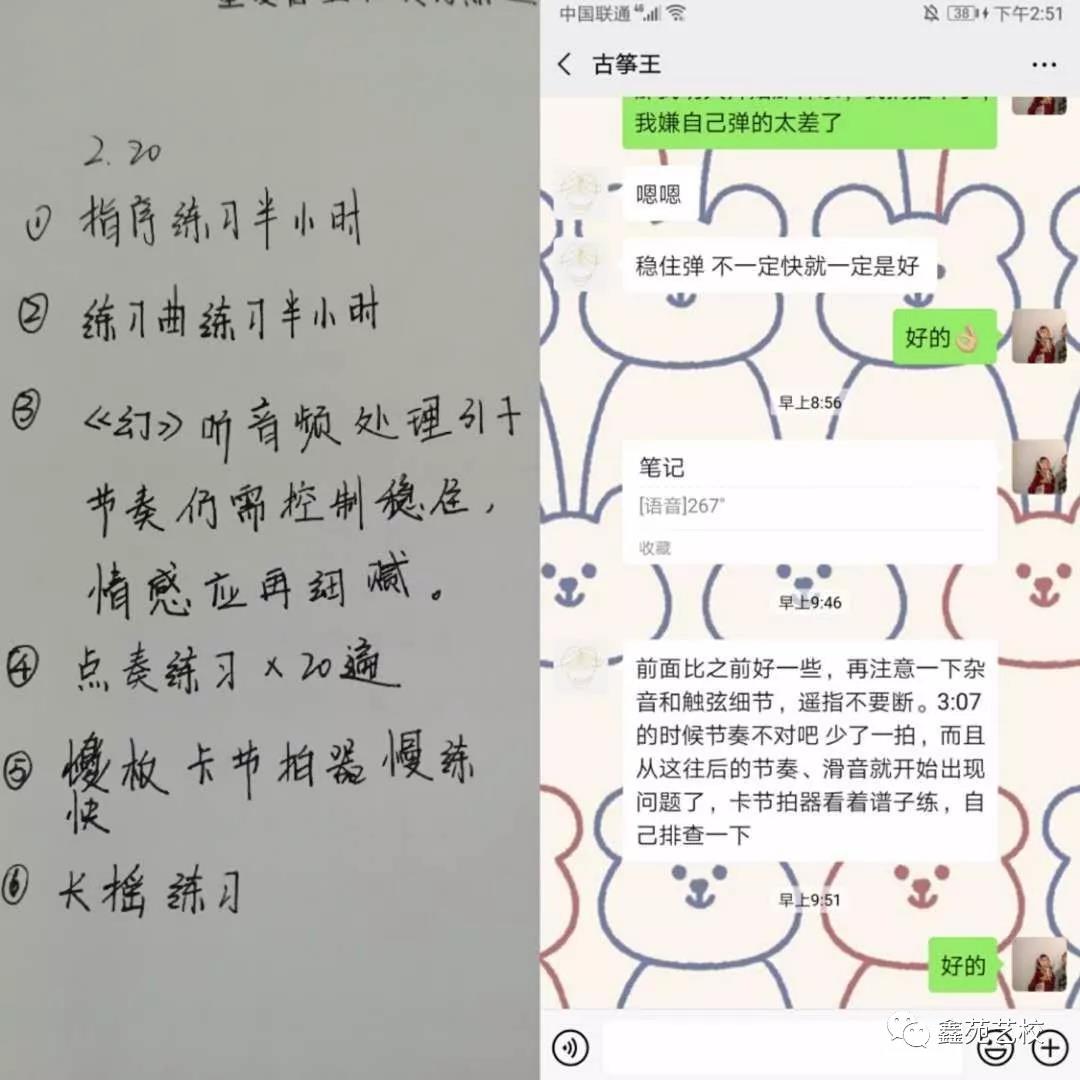 2.20
① 指序练习半小时
② 练习曲练习半小时
③ 《幻》听音频处理引子
节奏仍需控制稳住，
情感应再细腻。
④ 点奏练习×20遍
⑤ 板 卡节拍器 慢练
快
⑥ 长摇练习
中国联通 4G 38 下午2:51
古筝王
我嫌自己弹的太差了
嗯嗯
稳住弹 不一定快就一定是好
好的👌🏼
早上8:56
笔记
[语音]267"
收藏
早上9:46
前面比之前好一些，再注意一下杂
音和触弦细节，遥指不要断。3:07
的时候节奏不对吧 少了一拍，而且
从这往后的节奏、滑音就开始出现
问题了，卡节拍器看着谱子练，自
己排查一下
早上9:51
好的
鑫苑艺校